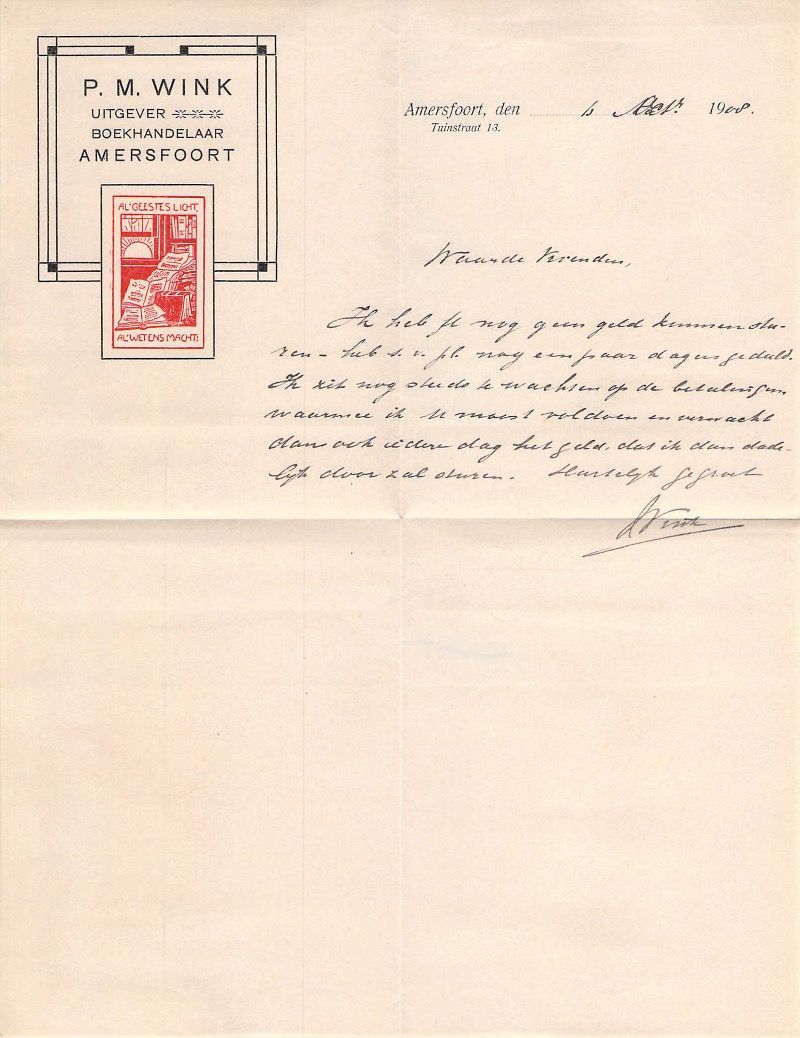 P. M. WINK
UITGEVER
BOEKHANDELAAR
AMERSFOORT
AL' GEESTES LICHT,
AL' WETENS MACHT:
Amersfoort, den 1908.
Tuinstraat 13.
Waarde Vrienden,
Ik heb U nog geen geld kunnen stu-
ren – heb s. v. pl. nog een paar dagen geduld.
Ik zit nog steeds te wachten op de betalingen
waarmee ik U moest voldoen en verwacht
dan ook iedere dag het geld, dat ik dan dade-
lijk door zal sturen. Hartelijk gegroet
Wink